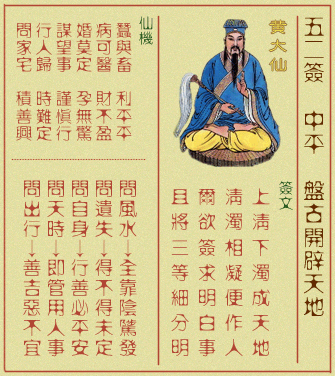 五二簽 中平 盤古開闢天地
黃大仙
簽文
上清下濁成天地
清濁相凝便作人
爾欲簽求明白事
且將三等細分明
仙機
蠶與畜 利平平
病可醫 財不盈
婚莫定 孕無驚
謀望事 謹慎行
行人歸 時難定
問家宅 積善興
問風水→全靠陰騭發
問遺失→得不得未定
問自身→行善必平安
問天時→即管用人事
問出行→善吉惡不宜